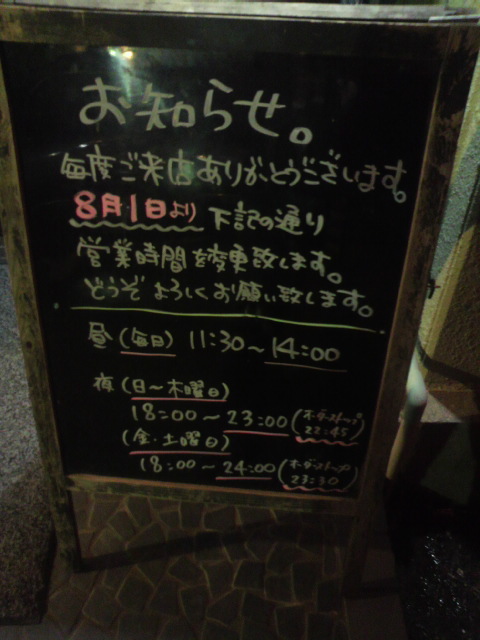 お知らせ。
毎度ご来店ありがとうございます。
8月1日より 下記の通り
営業時間を変更致します。
どうぞ よろしくお願い致します。
昼 (毎日) 11:30～14:00
夜 (日～木曜日)
18:00～23:00 (オーダーストップ
22:45)
(金・土曜日)
18:00～24:00 (オーダーストップ
23:30)